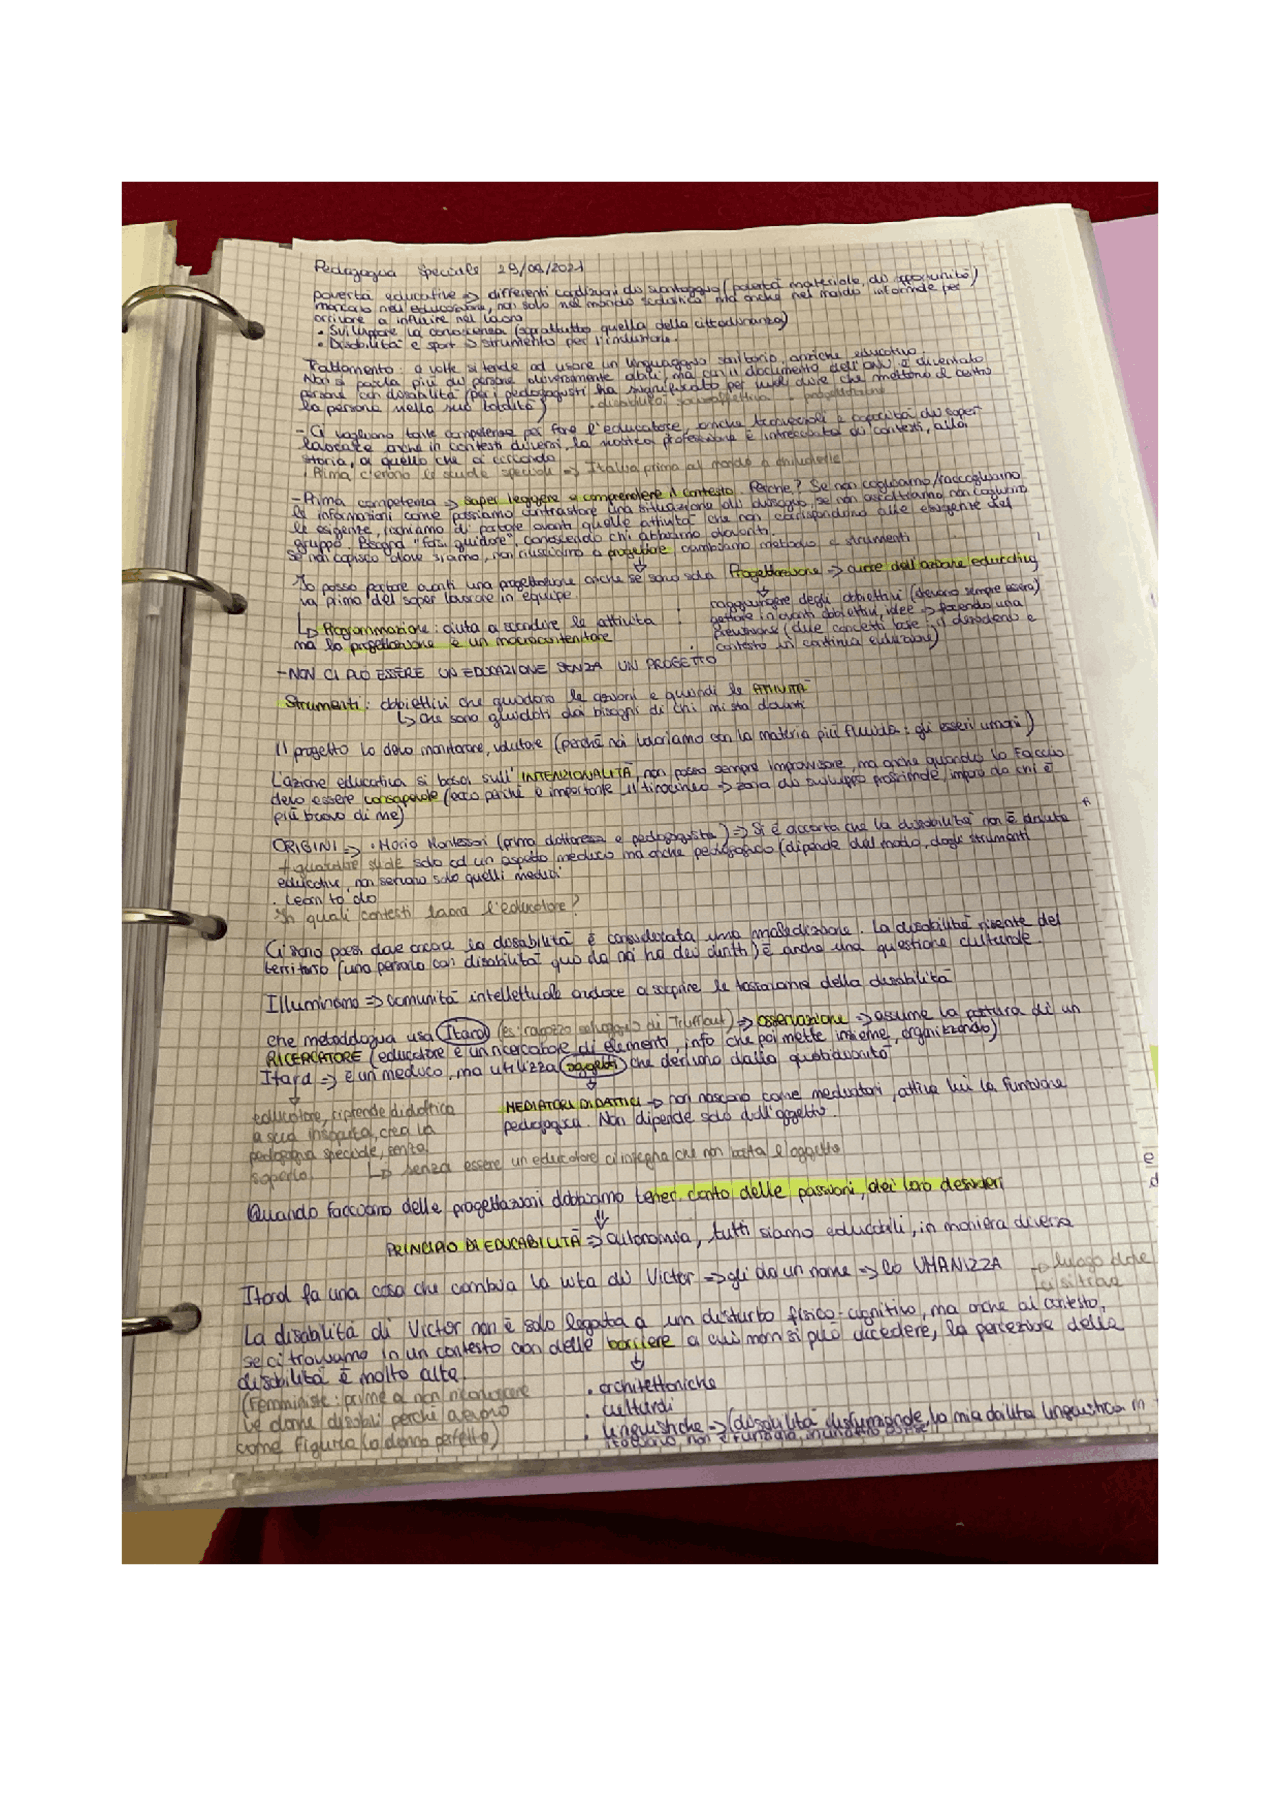 Pedagogia speciale 29/09/2021
povertà educative => differenti condizioni di svantaggio (povertà materiale, di opportunità)
mancato nell'educazione, non solo nel mondo scolastico ma anche nel mondo informale per
arrivare a influire nel lavoro
• Sviluppare la conoscenza (soprattutto quella della cittadinanza)
• Disabilità e sport => strumento per l'inclusione.
Trattamento: a volte si tende ad usare un linguaggio sanitario, anziché educativo.
Non si parla più di persone diversamente abili ma con il documento dell'ONU è diventato
persone con disabilità (per i pedagogisti ha significato per vuol dire che mettono al centro
la persona nella sua totalità)
- Ci vogliono tante competenze per fare l'educatore, anche trasversali e capacità di saper
lavorare anche in contesti diversi, la nostra professione è intrecciata di contesti, alla
storia, a quello che ci circonda
• Prima c'erano le scuole speciali => Italia prima al mondo a chiuderle
- Prima competenza => saper leggere e comprendere il contesto. Perché? Se non cogliamo/raccogliamo
le informazioni come possiamo contrastare una situazione di disagio, se non ascoltiamo non cogliamo
le esigenze, rischiamo di portare avanti quelle attività che non corrispondono alle esigenze del
gruppo. Bisogna "farsi guidare", conoscendo chi abbiamo davanti.
Se noi capiamo dove siamo, noi riusciamo a progettare cambiamo metodo e strumenti
Io posso portare avanti una progettazione anche se sono sola Progettazione => cuore dell'azione educativa
va prima del saper lavorare in equipe
raggiungere degli obiettivi (devono sempre esserci)
↳ Programmazione: aiuta a scandire le attività
portare in avanti obiettivi, idee => facendo una
ma la progettazione è un macrocontenitore
previsione (due concetti base: il desiderio e
contesto in continua evoluzione)
- NON CI PUÒ ESSERE UN EDUCAZIONE SENZA UN PROGETTO
Strumenti: obbiettivi che guidano le azioni e quindi le ATTIVITÀ
↳ che sono guidati dai bisogni di chi mi sta davanti
Il progetto lo devo monitorare, valutare (perché noi lavoriamo con la materia più fluida: gli esseri umani)
L'azione educativa si basa sull'INTENZIONALITÀ, non posso sempre improvvisare, ma anche quando lo faccio
devo essere consapevole (ecco perché è importante il tirocinio => zona di sviluppo prossimale, imparo da chi è
più bravo di me)
ORIGINI => • Maria Montessori (prima dottoressa e pedagogista) => Si è accorta che la disabilità non è dovuta
solo ad un aspetto medico ma anche pedagogico (dipende dal modo, dagli strumenti
educativi, non servono solo quelli medici
• Lean to do
In quali contesti lavora l'educatore?
Ci sono paesi dove ancora la disabilità è considerata una maledizione. La disabilità risente del
territorio (una persona con disabilità qui da noi ha dei diritti) è anche una questione culturale.
Illuminismo => comunità intellettuale audace a scoprire le tassonomie della disabilità
Che metodologia usa Itard (es: ragazzo selvaggio di Truffaut) => osservazione => assume la postura di un
RICERCATORE (educatore è un ricercatore di elementi, info che poi mette insieme, organizzando)
Itard => è un medico, ma utilizza oggetti che derivano dalla quotidianità
educatore, riprende didattica
MEDIATORI DIDATTICI => non nascono come mediatori, attiva lui la funzione
a sua insaputa, crea la
pedagogica. Non dipende solo dall'oggetto.
pedagogia speciale, senza
saperlo.
↳ senza essere un educatore ci insegna che non basta l'oggetto
Quando facciamo delle progettazioni dobbiamo tener conto delle passioni, dei loro desideri
PRINCIPIO DI EDUCABILITÀ => autonomia, tutti siamo educabili, in maniera diversa
Itard fa una cosa che cambia la vita di Victor => gli dà un nome => lo UMANIZZA
luogo dove
lui si trova
La disabilità di Victor non è solo legata a un disturbo fisico-cognitivo, ma anche al contesto,
se ci troviamo in un contesto con delle barriere a cui non si può accedere, la percezione della
disabilità è molto alta.
(Femministe: prime a non riconoscere
le donne disabili perché avevano
come figura la donna perfetta)
• architettoniche
• culturali
• linguistiche => (disabilità disfunzionale, la mia abilità linguistica in